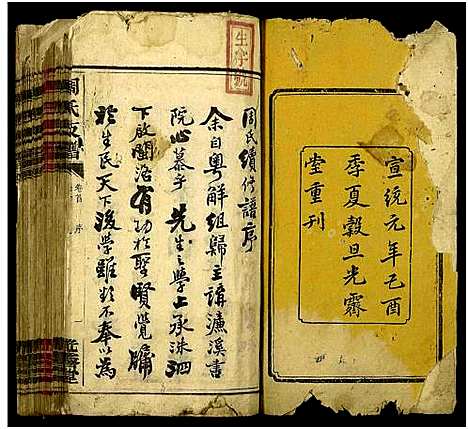 宣統元年己酉
季夏穀旦光霽
堂重刊
生字號
周氏續修譜序
余自粤解組歸主講濂溪書
院心慕乎 先生之學上承洙泗
下啟閩洛有功於聖賢覺牖
於生民天下後學雖欲不奉以為
周氏支譜
卷首 序
光霽堂